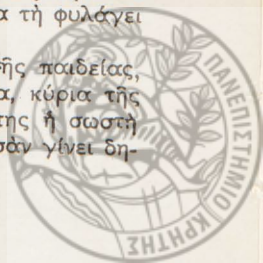 α τὴ φυλάγει
ῆς παιδείας,
α, κύρια τῆς
της ἡ σωστὴ
σὰν γίνει δη-
ΠΑΝΕΠΙΣΤΗΜΙΟ ΚΡΗΤΗΣ